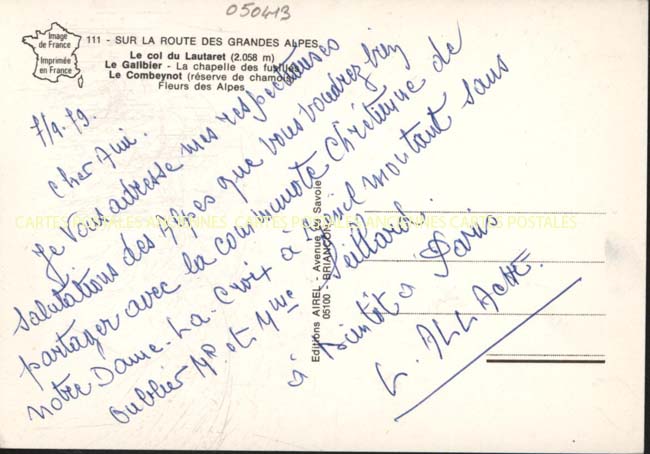 050413
Image
de France
Imprimée
en France
111 - SUR LA ROUTE DES GRANDES ALPES
Le col du Lautaret (2.058 m)
Le Galibier - La chapelle des fusillés
Le Combeynot (réserve de chamois)
Fleurs des Alpes
7/9.79.
Cher Ami.
Je vous adresse mes respectueuses
salutations des Alpes que vous voudrez bien
partager avec la communauté Chrétienne de
Notre Dame-La-Croix à montant sans
oublier Mr et Mme
à Bientôt à Paris
L. ALLACHE.
Editions AIREL - Avenue de Savoie
05100 - BRIANÇON
CARTES POSTALES ANCIENNES CARTES POSTALES ANCIENNES CARTES POSTALES